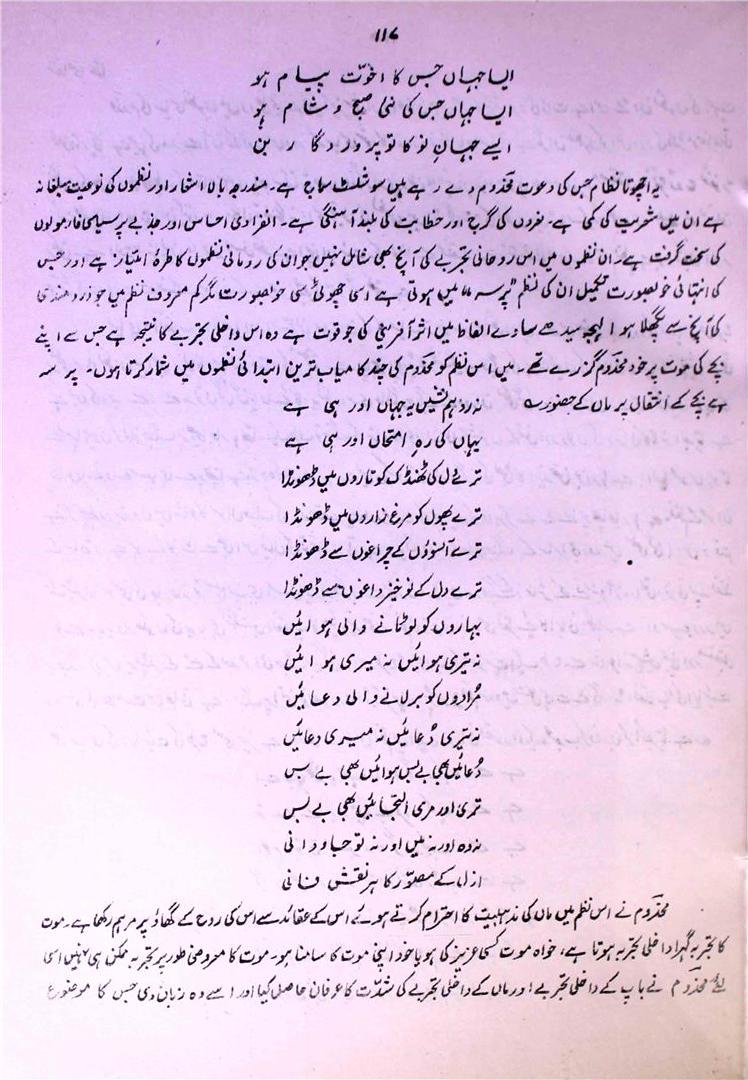 ۱۱۷
ایسا جہاں جس کا اخوّت پیام ہو
ایسا جہاں جس کی نئی صبح و شام ہو
ایسے جہانِ نو کا تو پروردگار بن
یہ اچھوتا نظام جس کی دعوت مخدوم دے رہے ہیں سوشلسٹ سماج ہے۔ مندرجہ بالا اشعار اور نظموں کی نوعیت مبلغانہ
ہے ان میں شعریت کی کمی ہے۔ نعروں کی گرج اور خطابیت کی بلند آہنگی ہے۔ انفرادی احساس اور جذبے پر سیاسی فارمولوں
کی سخت گرفت ہے۔ ان نظموں میں اس روحانی تجربے کی آنچ بھی شامل نہیں جو ان کی رومانی نظموں کا طرۂ امتیاز ہے اور جس
کی انتہائی خوبصورت تکمیل ان کی نظم "پرسہ" میں ہوتی ہے اسی چھوٹی سی خوبصورت مگر کم معروف نظم میں جو دردمندی
کی آنچ سے پگھلا ہوا لہجہ سیدھے سادے الفاظ میں اثر آفرینی کی جو قوت ہے وہ اس داخلی تجربے کا نتیجہ ہے جس سے اپنے
بچے کی موت پر خود مخدوم گزرے تھے۔ میں اس نظم کو مخدوم کی چند کامیاب ترین ابتدائی نظموں میں شمار کرتا ہوں۔ پرسہ
ہے بچے کے انتقال پر ماں کے حضور سے
نہ رو ہم نشیں یہ جہاں اور ہی ہے
یہاں کی رہِ امتحاں اور ہی ہے
ترے دل کی ٹھنڈک کو تاروں میں ڈھونڈا
ترے پھول کو مرغزاروں میں ڈھونڈا
ترے آنسوؤں کے چراغوں سے ڈھونڈا
ترے دل کے نوخیز داغوں سے ڈھونڈا
بہاروں کو لوٹانے والی ہوائیں
نہ تیری ہوائیں نہ میری ہوائیں
مرادوں کو بر لانے والی دعائیں
نہ تیری دُعائیں نہ میری دعائیں
دُعائیں بھی بے بس ہوائیں بھی بے بس
تری اور مری التجائیں بھی بے بس
نہ وہ اور نہ میں اور نہ تو جاودانی
ازل کے مصوّر کا ہر نقش فانی
مخدوم نے اس نظم میں ماں کی مذہبیت کا احترام کرتے ہوئے اس کے عقائد سے اس کی روح کے گھاؤ پر مرہم رکھا ہے۔ موت
کا تجربہ گہرا داخلی تجربہ ہوتا ہے، خواہ موت کسی عزیز کی ہو یا خود اپنی موت کا سامنا ہو۔ موت کا معروضی طور پر تجربہ ممکن ہی نہیں اسی
لئے مخدوم نے باپ کے داخلی تجربے اور ماں کے داخلی تجربے کی شدّت کا عرفان حاصل کیا اور اسے وہ زبان دی جس کا موضوع